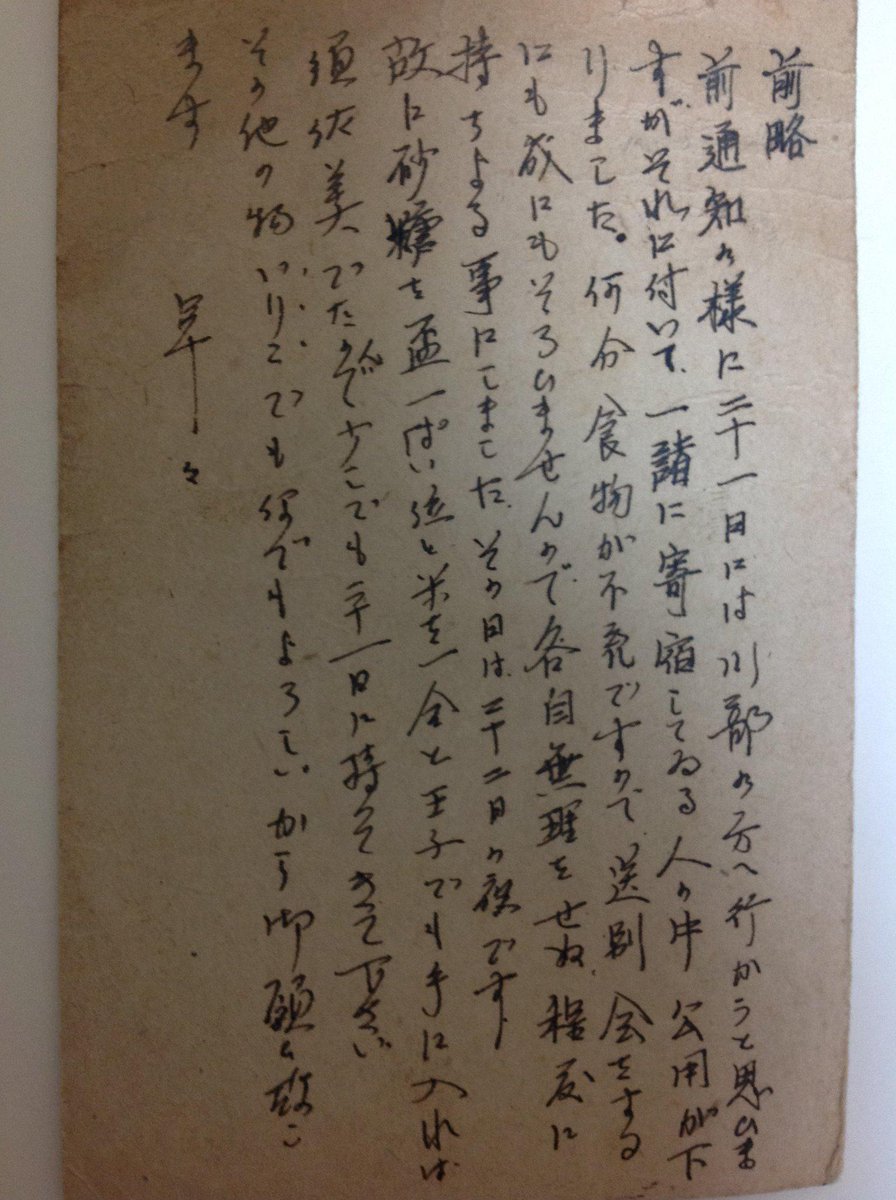 前略
前通知の様に二十一日には川部の方へ行かうと思ひま
すがそれに付いて、一諸に寄宿してゐる人の中 公用が下
りました。何分食物が不充ですので、送別会をする
にも成にもそろひませんので各自無理をせぬ程度に
持ちよる事にしました、その日は二十二日の夜です
故に砂糖を盃一ぱい位と米を一合と玉子でも手に入れば
須佐美でたのんで少こでも二十一日に持つてきて下さい
その他の物いりこでも何でもよろしいから御願ひ致し
ます 早々